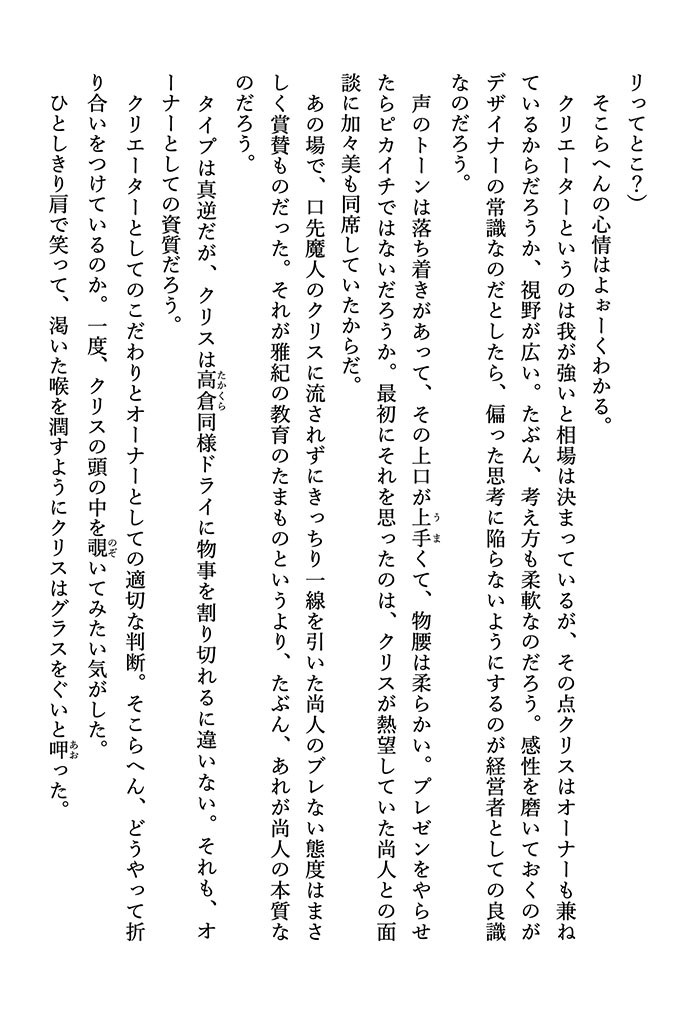 リってとこ？）
そこらへんの心情はよぉーくわかる。
クリエーターというのは我が強いと相場は決まっているが、その点クリスはオーナーも兼ね
ているからだろうか、視野が広い。たぶん、考え方も柔軟なのだろう。感性を磨いておくのが
デザイナーの常識なのだとしたら、偏った思考に陥らないようにするのが経営者としての良識
なのだろう。
声のトーンは落ち着きがあって、その上口が上手くて、物腰は柔らかい。プレゼンをやらせ
たらピカイチではないだろうか。最初にそれを思ったのは、クリスが熱望していた尚人との面
談に加々美も同席していたからだ。
あの場で、口先魔人のクリスに流されずにきっちり一線を引いた尚人のブレない態度はまさ
しく賞賛ものだった。それが雅紀の教育のたまものというより、たぶん、あれが尚人の本質な
のだろう。
タイプは真逆だが、クリスは高倉同様ドライに物事を割り切れるに違いない。それも、オ
ーナーとしての資質だろう。
クリエーターとしてのこだわりとオーナーとしての適切な判断。そこらへん、どうやって折
り合いをつけているのか。一度、クリスの頭の中を覗いてみたい気がした。
ひとしきり肩で笑って、渇いた喉を潤すようにクリスはグラスをぐいと呷った。